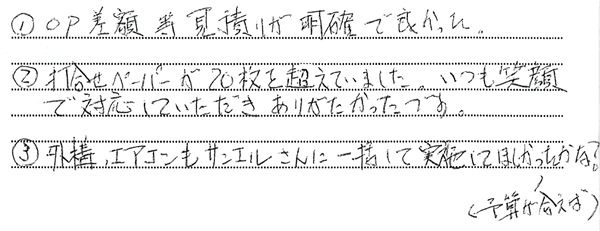 ① OP差額等見積りが明確で良かった。
② 打合せペーパーが70枚を超えていました。いつも笑顔
で対応していただきありがたかったです。
③ 外構、エアコンもサンエルさんに一括して実施してほしかったかな?
(予算が合えば)